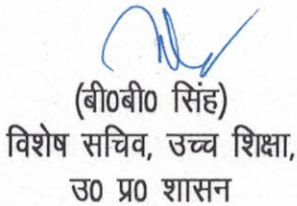 (बी0बी0 सिंह)
विशेष सचिव, उच्च शिक्षा,
उ0 प्र0 शासन